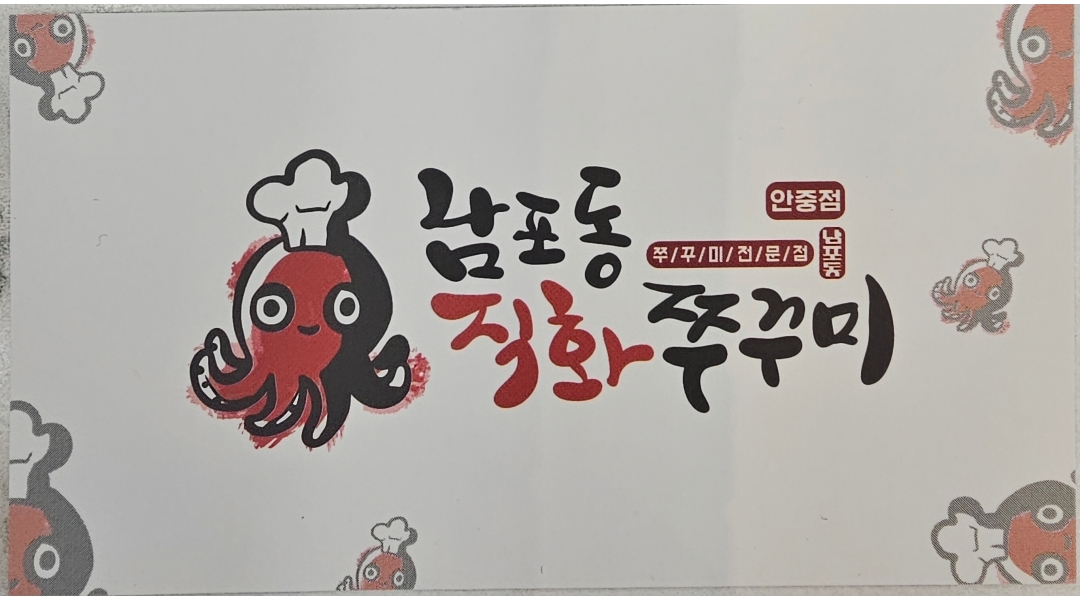 남포동
안중점
쭈/꾸/미/전/문/점
남포동
직화쭈꾸미